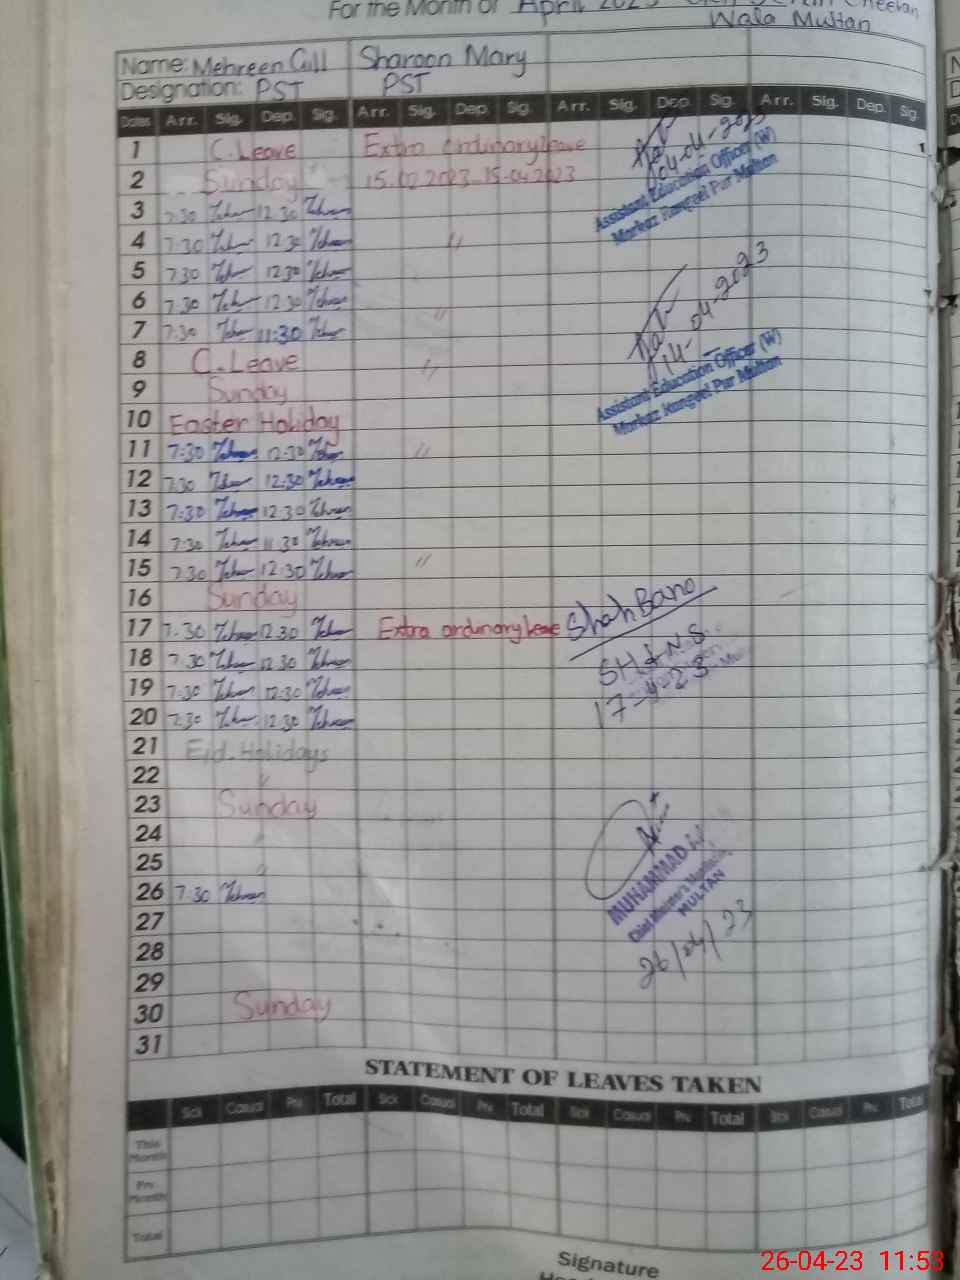 For the Month of April 2023
Wala Multan
Name: Mehreen Gill Sharoon Mary
Designation: PST PST
Dates Arr. Sig. Dep. Sig. Arr. Sig. Dep. Sig. Arr. Sig. Dep. Sig. Arr. Sig. Dep. Sig.
1 C.Leave Extra ordinary leave
2 Sunday 15.02.2023_15.04.2023
04-04-2023
Assistant Education Officer (W)
Markaz Rangeel Pur Multan
3 7:30 12.30
4 7:30 12.30 〃
5 7:30 12.30
6 7:30 12.30 〃
7 7:30 11:30
14-04-2023
8 C.Leave 〃
9 Sunday
Assistant Education Officer (W)
Markaz Rangeel Pur Multan
10 Easter Holiday
11 7:30 12.30 〃
12 7:30 12:30
13 7:30 12.30
14 7:30 11.30
15 7:30 12:30 〃
16 Sunday
17 7:30 12.30 Extra ordinary leave Shah Bano
18 7.30 12.30 SH & N.S.
19 7:30 12:30 17-4-23
20 7:30 12.30
21 Eid Holidays
22
23 Sunday
24
25
26 7:30
MUHAMMAD
MULTAN
26/04/23
27
28
29
30 Sunday
31
STATEMENT OF LEAVES TAKEN
Sick Casual Prv. Total Sick Casual Prv. Total Sick Casual Prv. Total Sick Casual Prv. Total
This Month
Prv. Month
Total
Signature
26-04-23 11:53